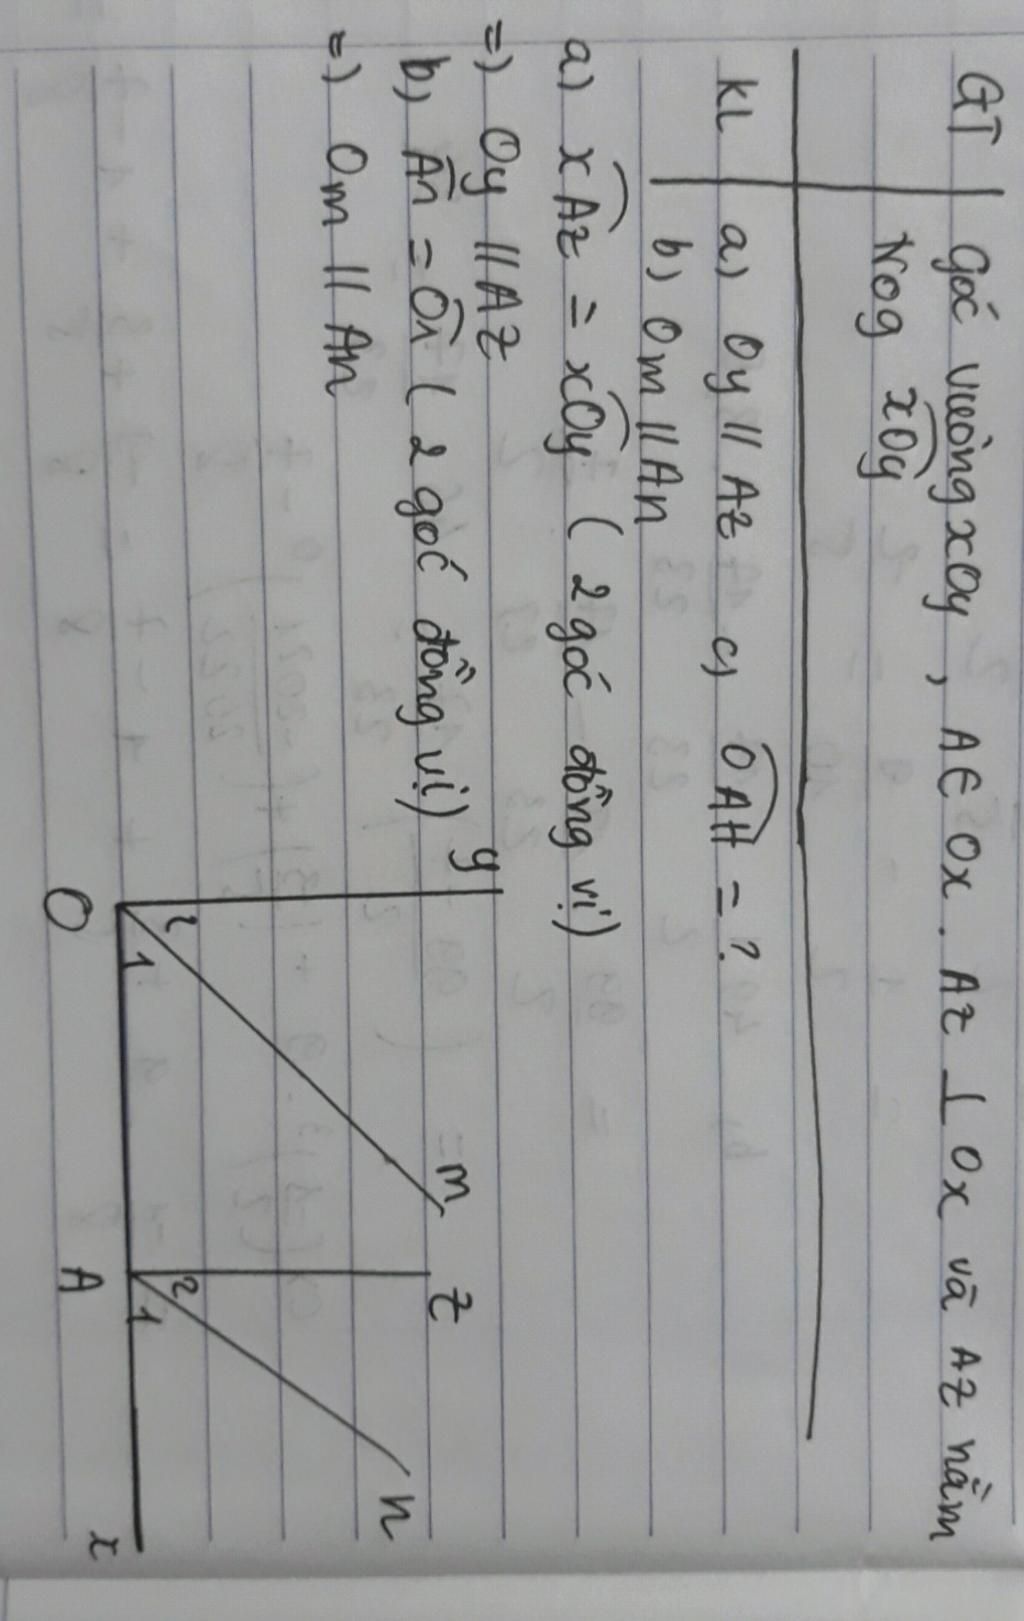 GT góc vuông xOy , A ∈ Ox . Az ⊥ Ox và Az nằm
Nog xOy
KL a) Oy // Az c) OAH = ?
b) Om // An
a) xAz = xOy ( 2 góc đồng vị)
=) Oy // Az
b) A1 = O1 ( 2 góc đồng vị)
=) Om // An
y
m
z
n
2
1
2
1
O
A
x